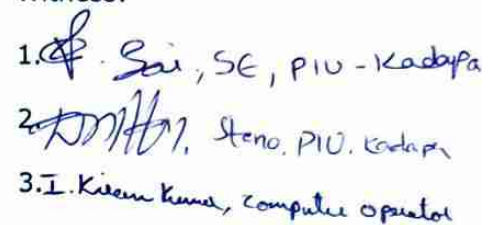 Witness:
1. Sai, SE, PIU - Kadapa
2. Steno. PIU. Kadapa
3. I. Kiran Kumar, Computer operator